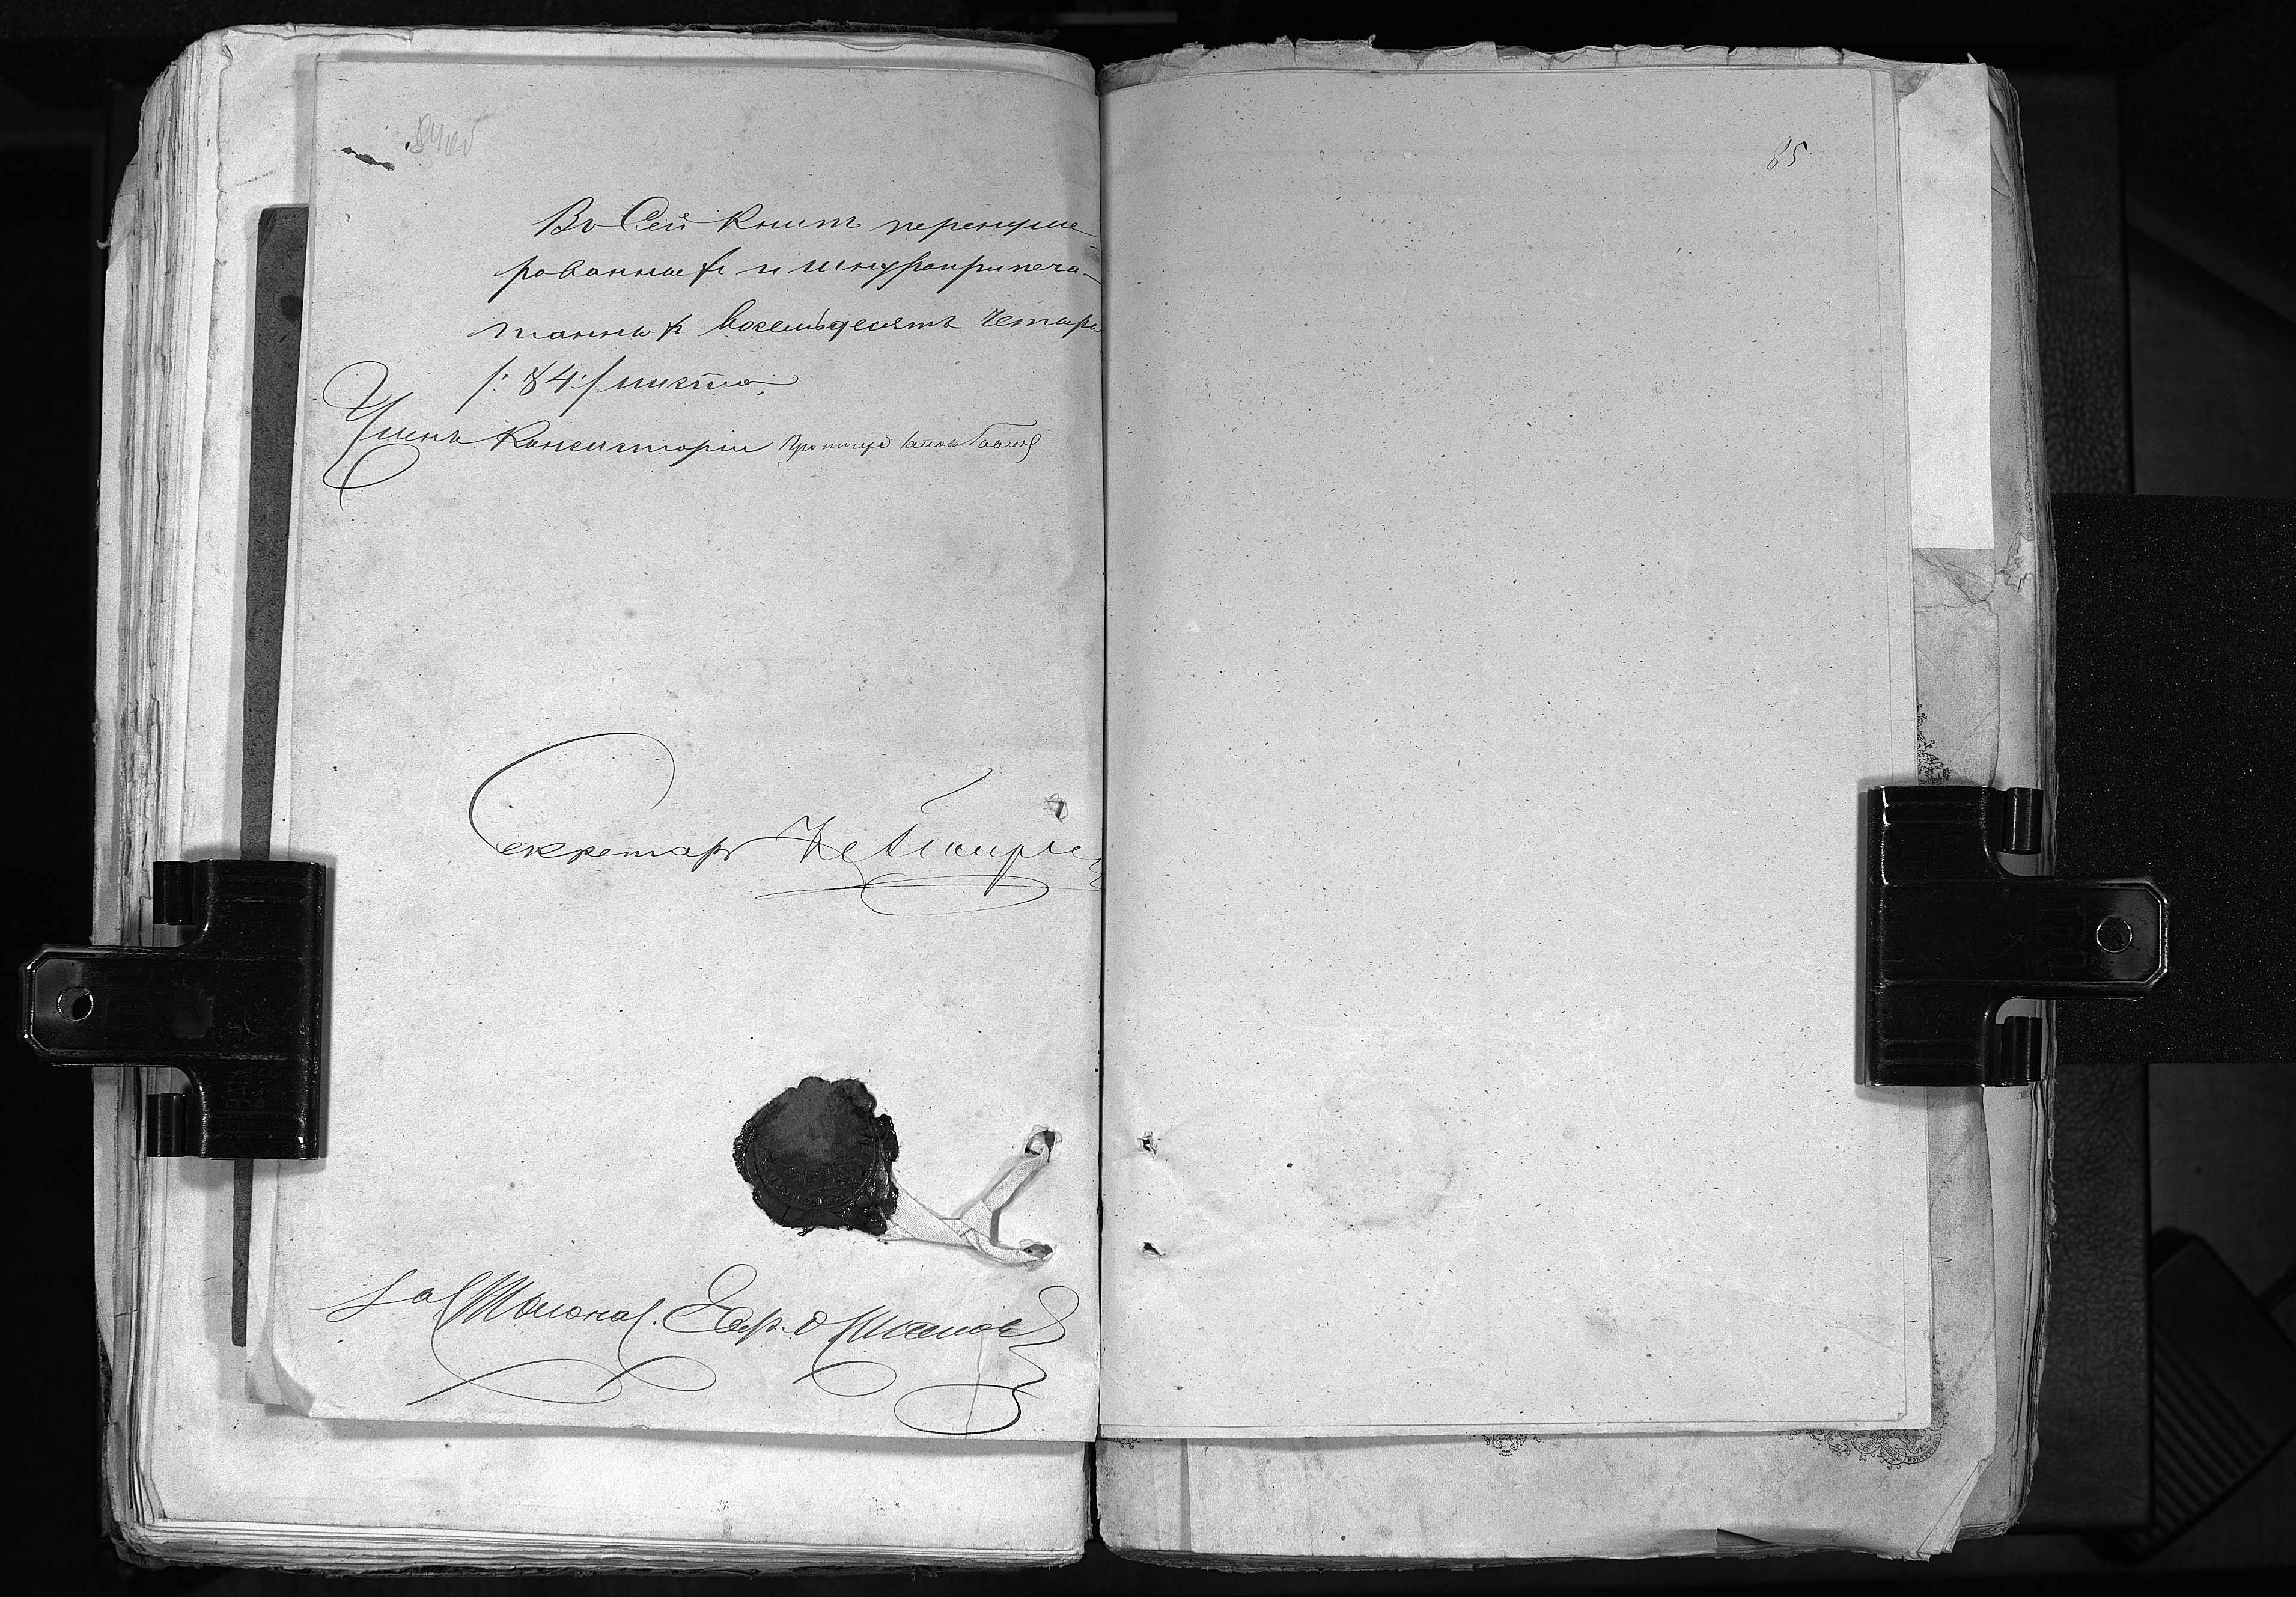 84 об
85
Въ Сей Книгѣ перенуме-
рованныхъ и шнуроприпеча-
танныхъ восемьдесятъ Четыре
/: 84 :/ листа.
Членъ Консисторіи Протоіерей
Секретарь
За Столонач.